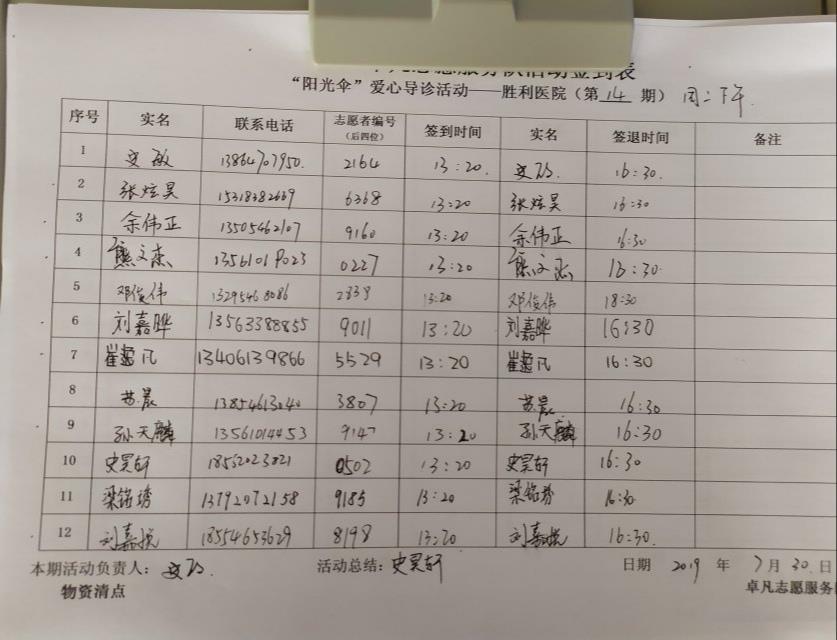 卓凡志愿服务队活动签到表
“阳光伞”爱心导诊活动——胜利医院（第 14 期） 周二下午
序号 实名 联系电话 志愿者编号（后四位） 签到时间 实名 签退时间 备注
1 13864707950. 2164 13:20. 16:30.
2 张炫昊 15318382669 6368 13:20 张炫昊 16:30
3 余伟正 13505462107 9160 13:20 余伟正 16:30
4 熊文杰 13561019023 0227 13:20 熊文杰 16:30
5 邓俊伟 13295468086 2838 13:20 邓俊伟 18:30
6 刘嘉晔 13563388855 9011 13:20 刘嘉晔 16:30
7 崔 凡 13406139866 5529 13:20 崔 凡 16:30
8 苏晨 13854613040 3807 13:20 苏晨. 16:30
9 孙天麟 13561014453 9147 13:20 孙天麟 16:30
10 史昊轩 18552023821 0502 13:20 史昊轩 16:30
11 梁铭琇 13792072158 9185 13:20 16:30
12 刘嘉悦 18554653629 8198 13:20 刘嘉悦 16:30.
本期活动负责人： 活动总结：史昊轩 日期 2019 年 7月30.日
物资清点 卓凡志愿服务